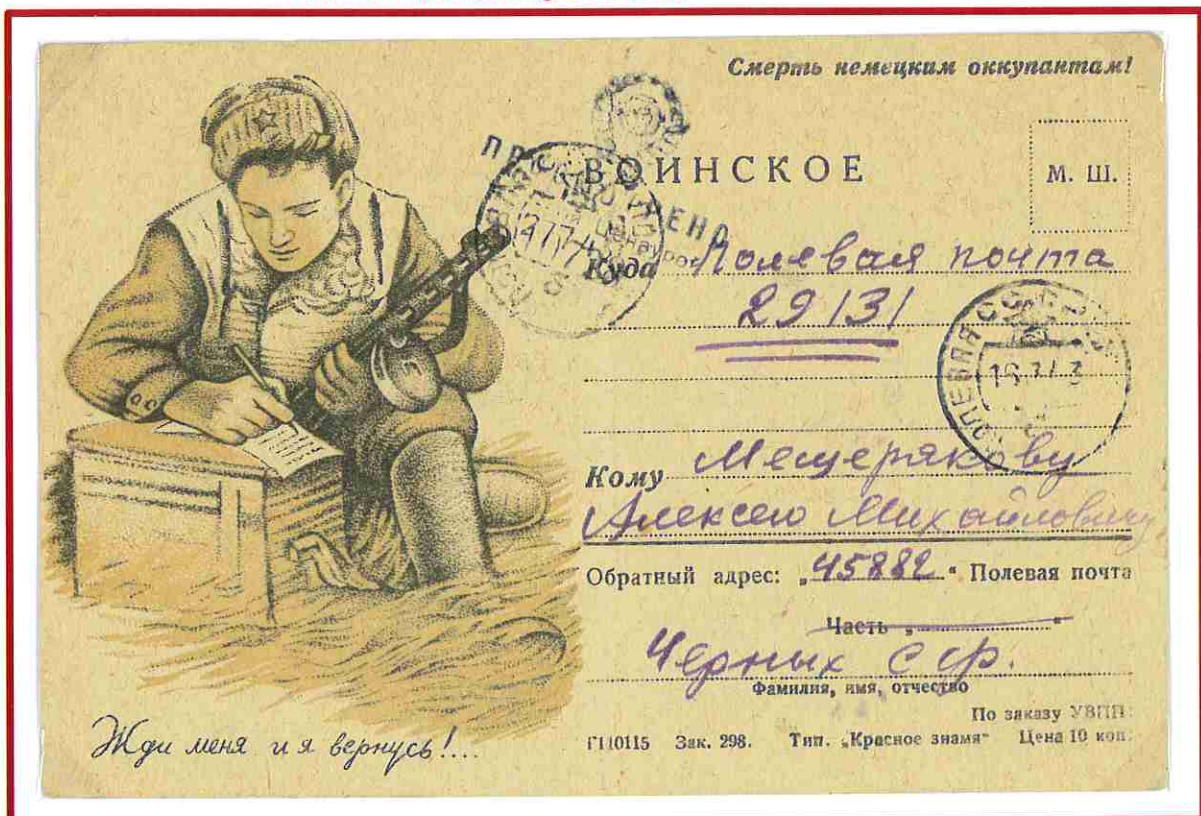 Смерть немецким оккупантам!
ВОИНСКОЕ
М. Ш.
Куда Полевая почта
29131
Кому Мещерякову
Алексею Михайловичу
Обратный адрес: „45882“ Полевая почта
Часть „ “
Черных С.Ф.
Фамилия, имя, отчество
По заказу УВПП
Г110115 Зак. 298. Тип. „Красное знамя“ Цена 10 коп.
Жди меня и я вернусь!...